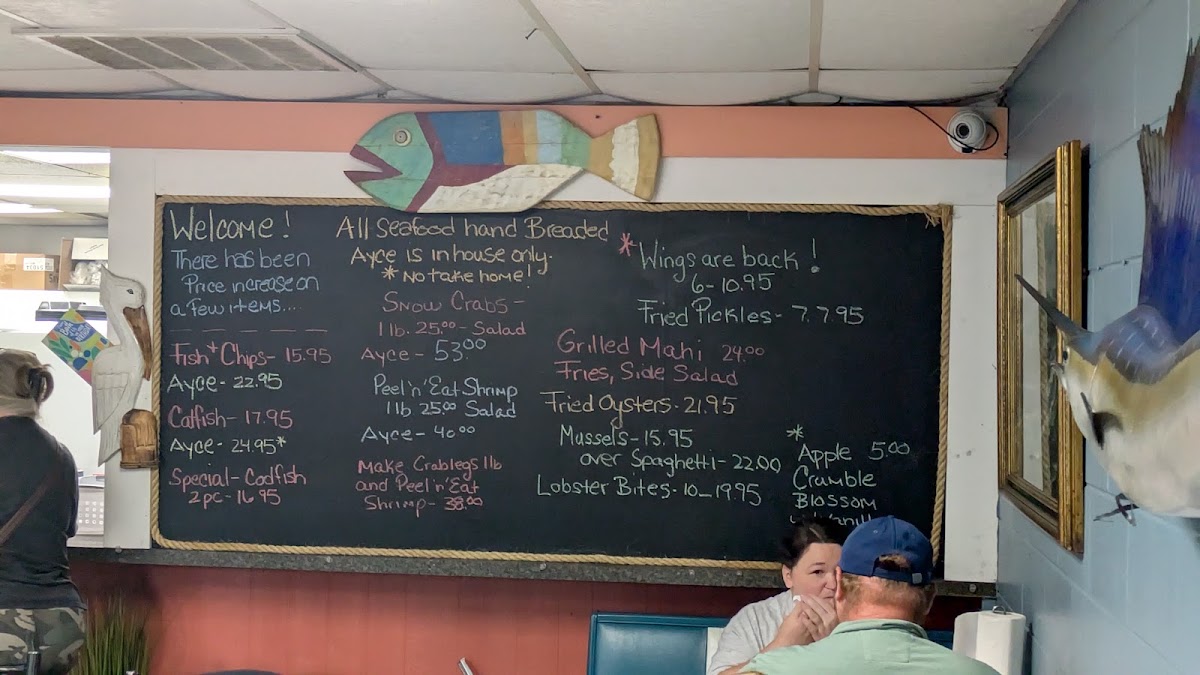 Welcome!
There has been
Price increase on
a few items...
Fish + Chips - 15.95
Ayce - 22.95
Catfish - 17.95
Ayce - 24.95*
Special - Codfish
2pc - 16.95
All Seafood hand Breaded
Ayce is in house only.
* No take home!
Snow Crabs -
1 lb. 25.00 - Salad
Ayce - 53.00
Peel 'n' Eat Shrimp
1 lb 25.00 Salad
Ayce - 40.00
Make Crablegs 1lb
and Peel 'n' Eat
Shrimp - 38.00
* Wings are back!
6 - 10.95
Fried Pickles - 7.95
Grilled Mahi 24.00
Fries, Side Salad
Fried Oysters - 21.95
Mussels - 15.95
over Spaghetti - 22.00
Lobster Bites - 10_19.95
*
Apple 5.00
Crumble
Blossom